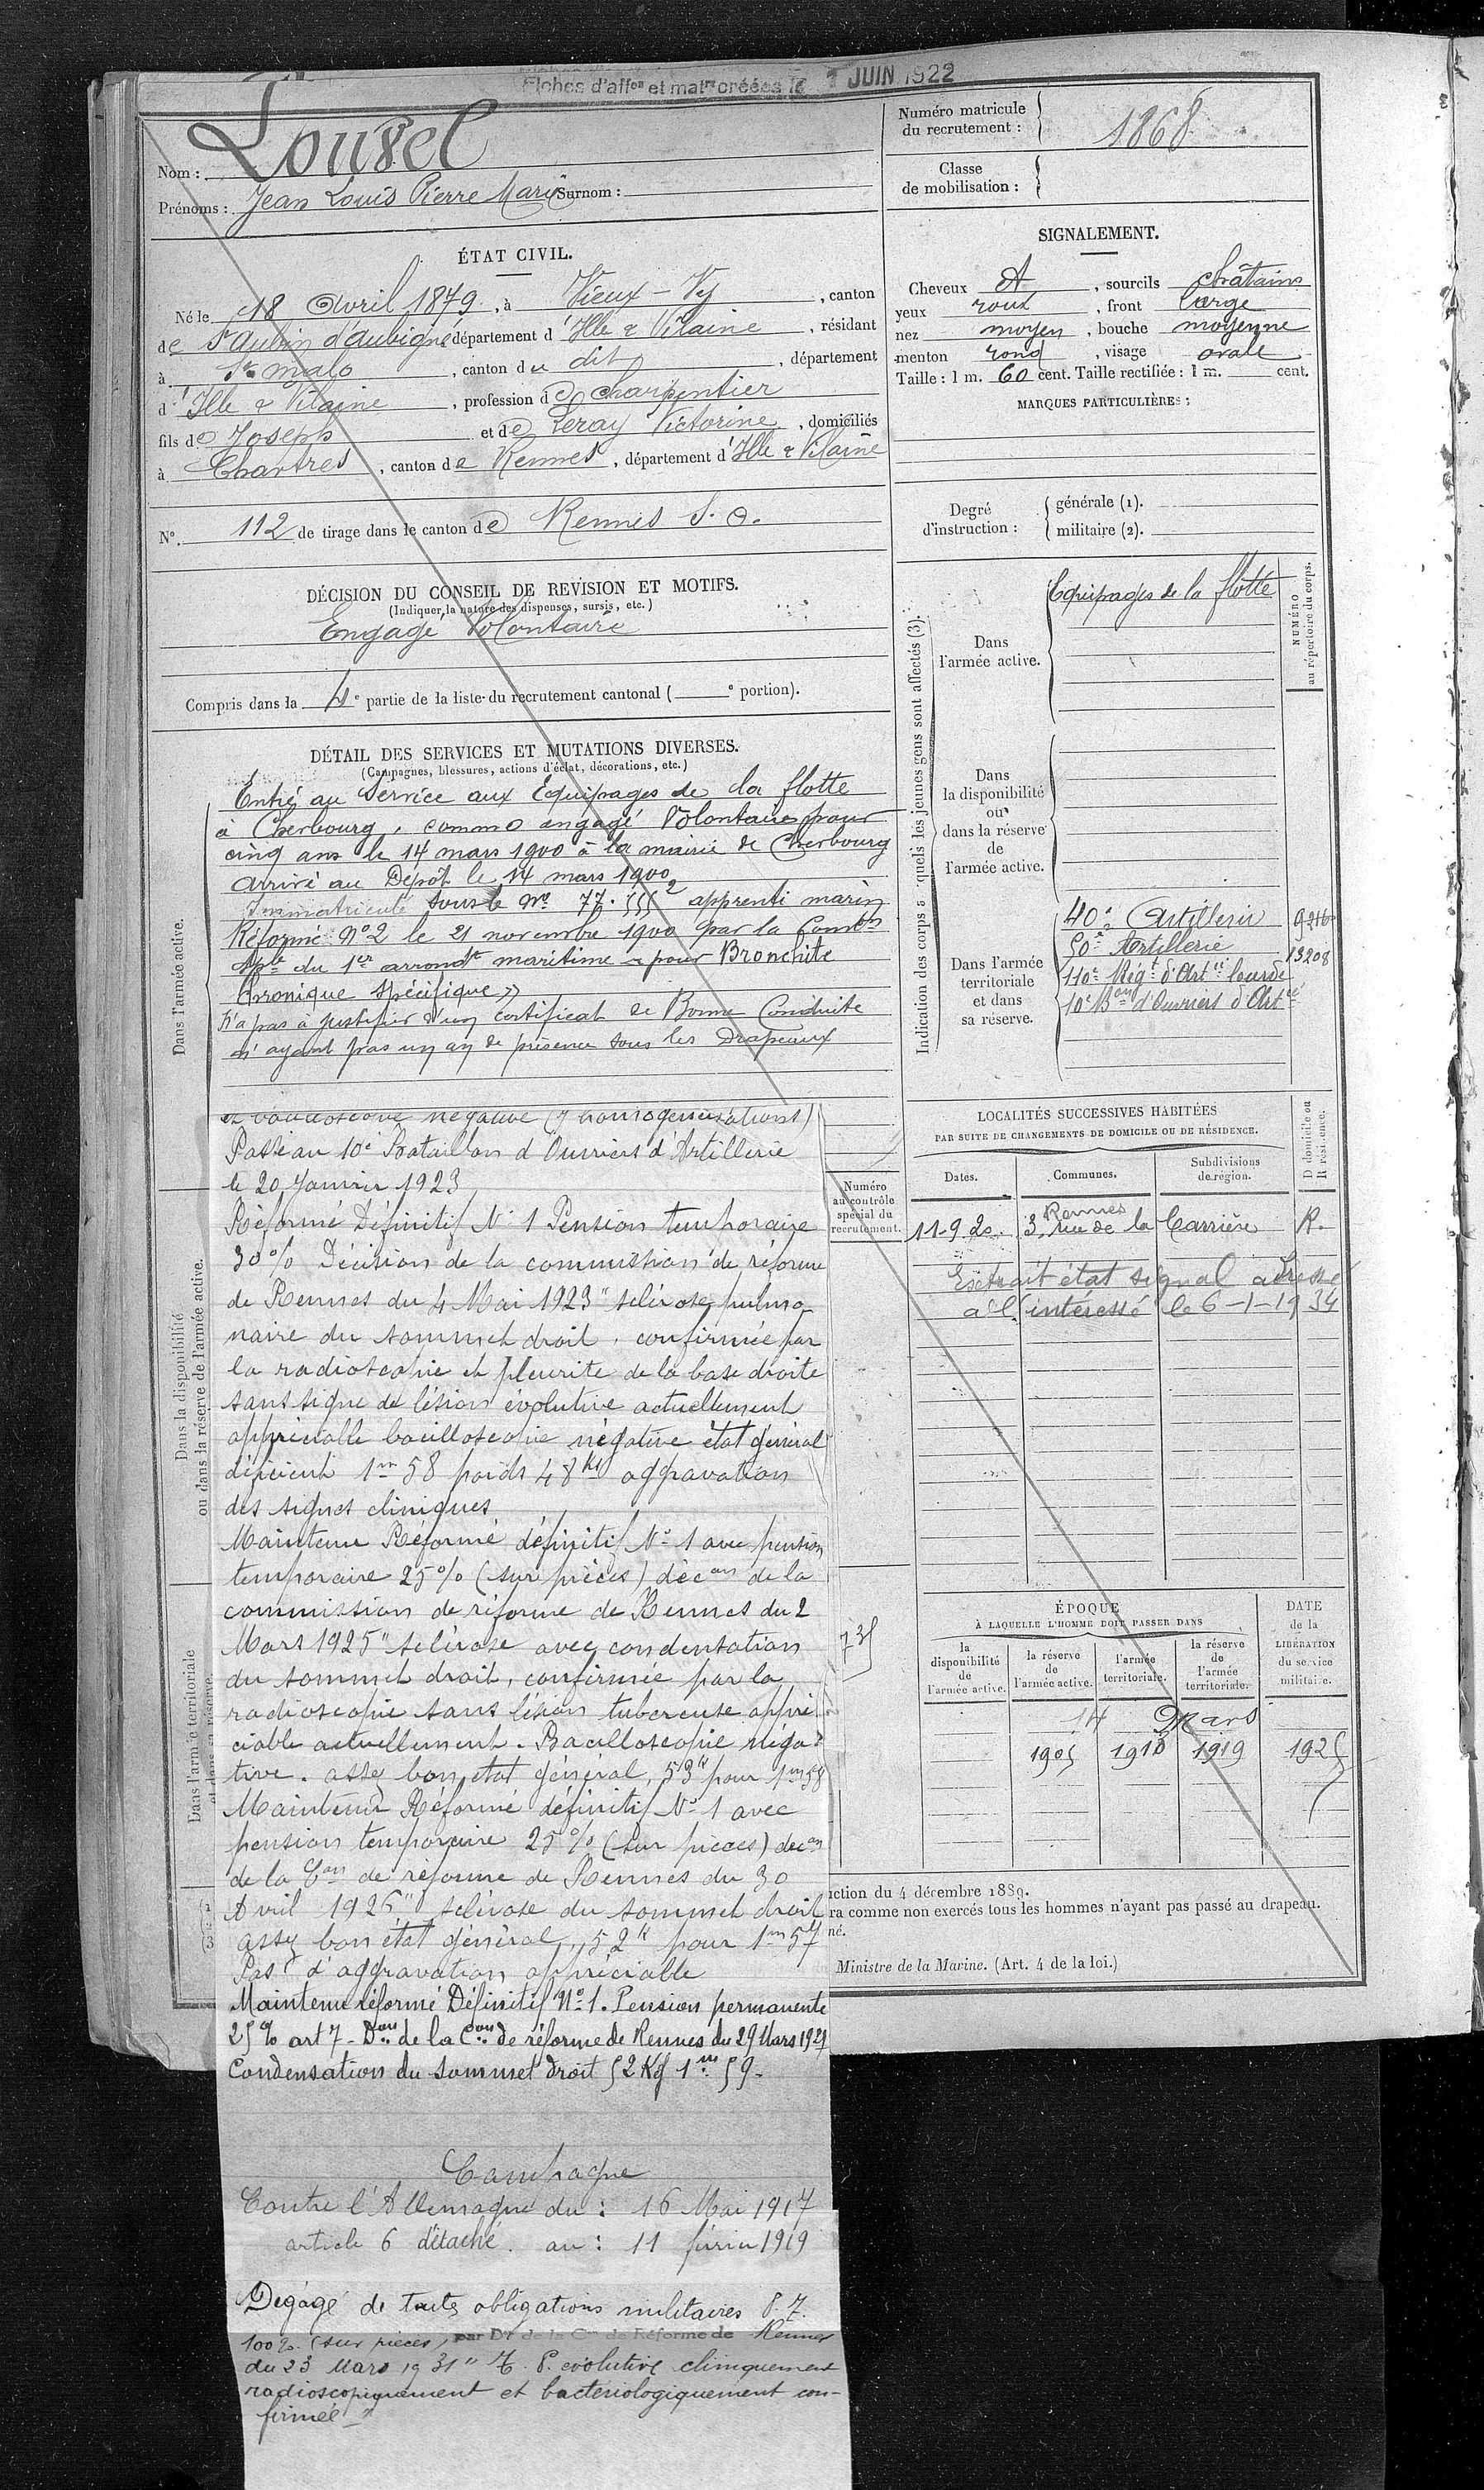 Fiches d'affon et matre créées le 1 JUIN 1922
Nom : Lousel
Prénoms : Jean Louis Pierre Marie Surnom :
Numéro matricule du recrutement : 1868
Classe de mobilisation :
ÉTAT CIVIL.
Né le 18 Avril 1879, à Vieux-Vy, canton
de St Aubin d'aubigné département d'Ille & Vilaine, résidant
à St malo, canton du dit, département
d'Ille & Vilaine, profession de charpentier
fils de Joseph et de Leray Victorine, domiciliés
à Chartres, canton de Rennes, département d'Ille & Vilaine
N°. 112 de tirage dans le canton de Rennes S. O.
SIGNALEMENT.
Cheveux et, sourcils châtains
yeux roux, front large
nez moyen, bouche moyenne
menton rond, visage ovale
Taille : 1 m. 60 cent. Taille rectifiée : 1 m. cent.
MARQUES PARTICULIÈRES :
Degré d'instruction : générale (1).
militaire (2).
DÉCISION DU CONSEIL DE REVISION ET MOTIFS.
(Indiquer la nature des dispenses, sursis, etc.)
Engagé Volontaire
Compris dans la 4e partie de la liste du recrutement cantonal ( e portion).
DÉTAIL DES SERVICES ET MUTATIONS DIVERSES.
(Campagnes, blessures, actions d'éclat, décorations, etc.)
Dans l'armée active.
Entré au Service aux Equipages de la flotte
à Cherbourg, comme engagé Volontaire pour
cinq ans le 14 mars 1900 à la mairie de Cherbourg
arrivé au Dépôt le 14 mars 1900
Immatriculé sous le No 77.555 2 apprenti marin
Réformé No 2 le 21 novembre 1900 par la Comon
Sple du 1er arrondt maritime « pour Bronchite
Chronique Spécifique »
N'a pas à justifier d'un certificat de Bonne Conduite
n'ayant pas un an de présence sous les Drapeaux
Dans la disponibilité
ou dans la réserve de l'armée active.
Dans l'armée territoriale
et dans sa réserve.
et bacilloscopie négative (7 homogeneisations)
Passé au 10e Bataillon d'Ouvriers d'Artillerie
le 20 Janvier 1923
Réformé Définitif No 1 Pension temporaire
30% Décision de la commission de réforme
de Rennes du 4 Mai 1923 " sclérose pulmo-
naire du sommet droit, confirmée par
la radioscopie et pleurite de la base droite
sans signe de lésion évolutive actuellement
appréciable bacilloscopie négative état général
déficient 1m 58 poids 48 kg aggravation
des signes cliniques
Maintenu Réformé définitif No 1 avec pension
temporaire 25% (sur pièces) décon de la
commission de réforme de Rennes du 2
Mars 1925 " sclérose avec condensation
du sommet droit, confirmée par la
radioscopie sans lésion tubercuse appré-
ciable actuellement. Bacilloscopie néga-
tive. assez bon état général, 53 k pour 1m 58
Maintenu Réformé définitif No 1 avec
pension temporaire 25% (sur pièces) décon
de la Con de réforme de Rennes du 30
Avril 1926 " sclérose du sommet droit
assez bon état général, 52 k pour 1m 57
Pas d'aggravation appréciable
Maintenu réformé Définitif No 1. Pension permanente
25% art 7 - Don de la Con de réforme de Rennes du 29 Mars 1927
Condensation du sommet droit 52 Kg 1m 59.
Campagne
Contre l'Allemagne du : 16 Mai 1917
article 6 détaché. au : 11 février 1919
Dégagé de toutes obligations militaires P. 7.
100% (sur pièces) par Don de la Con de Réforme de Rennes
du 23 Mars 1931 " T. P. évolutive cliniquement
radioscopiquement et bactériologiquement con-
firmée "
Indication des corps auxquels les jeunes gens sont affectés (3).
NUMÉRO au répertoire du corps.
Dans l'armée active.
Equipages de la flotte
Dans la disponibilité
ou
dans la réserve
de
l'armée active.
Dans l'armée
territoriale
et dans
sa réserve.
40e Artillerie
50e Artillerie 13208
110e Régt d'Artie lourde
10e Bon d'Ouvriers d'Artie
LOCALITÉS SUCCESSIVES HABITÉES
PAR SUITE DE CHANGEMENTS DE DOMICILE OU DE RÉSIDENCE.
Numéro au contrôle spécial du recrutement.
735
Dates. Communes. Subdivisions de région. D domicile ou R résidence.
11-9 20. Rennes 3, rue de la Carrière R.
Extrait état signal adressé
à l'intéressé le 6-1-1934
ÉPOQUE
À LAQUELLE L'HOMME DOIT PASSER DANS
DATE de la LIBÉRATION du service militaire.
la disponibilité de l'armée active. la réserve de l'armée active. l'armée territoriale. la réserve de l'armée territoriale.
14 Mars
1905 1918 1919 1925
uction du 4 décembre 1889.
ra comme non exercés tous les hommes n'ayant pas passé au drapeau.
né.
Ministre de la Marine. (Art. 4 de la loi.)